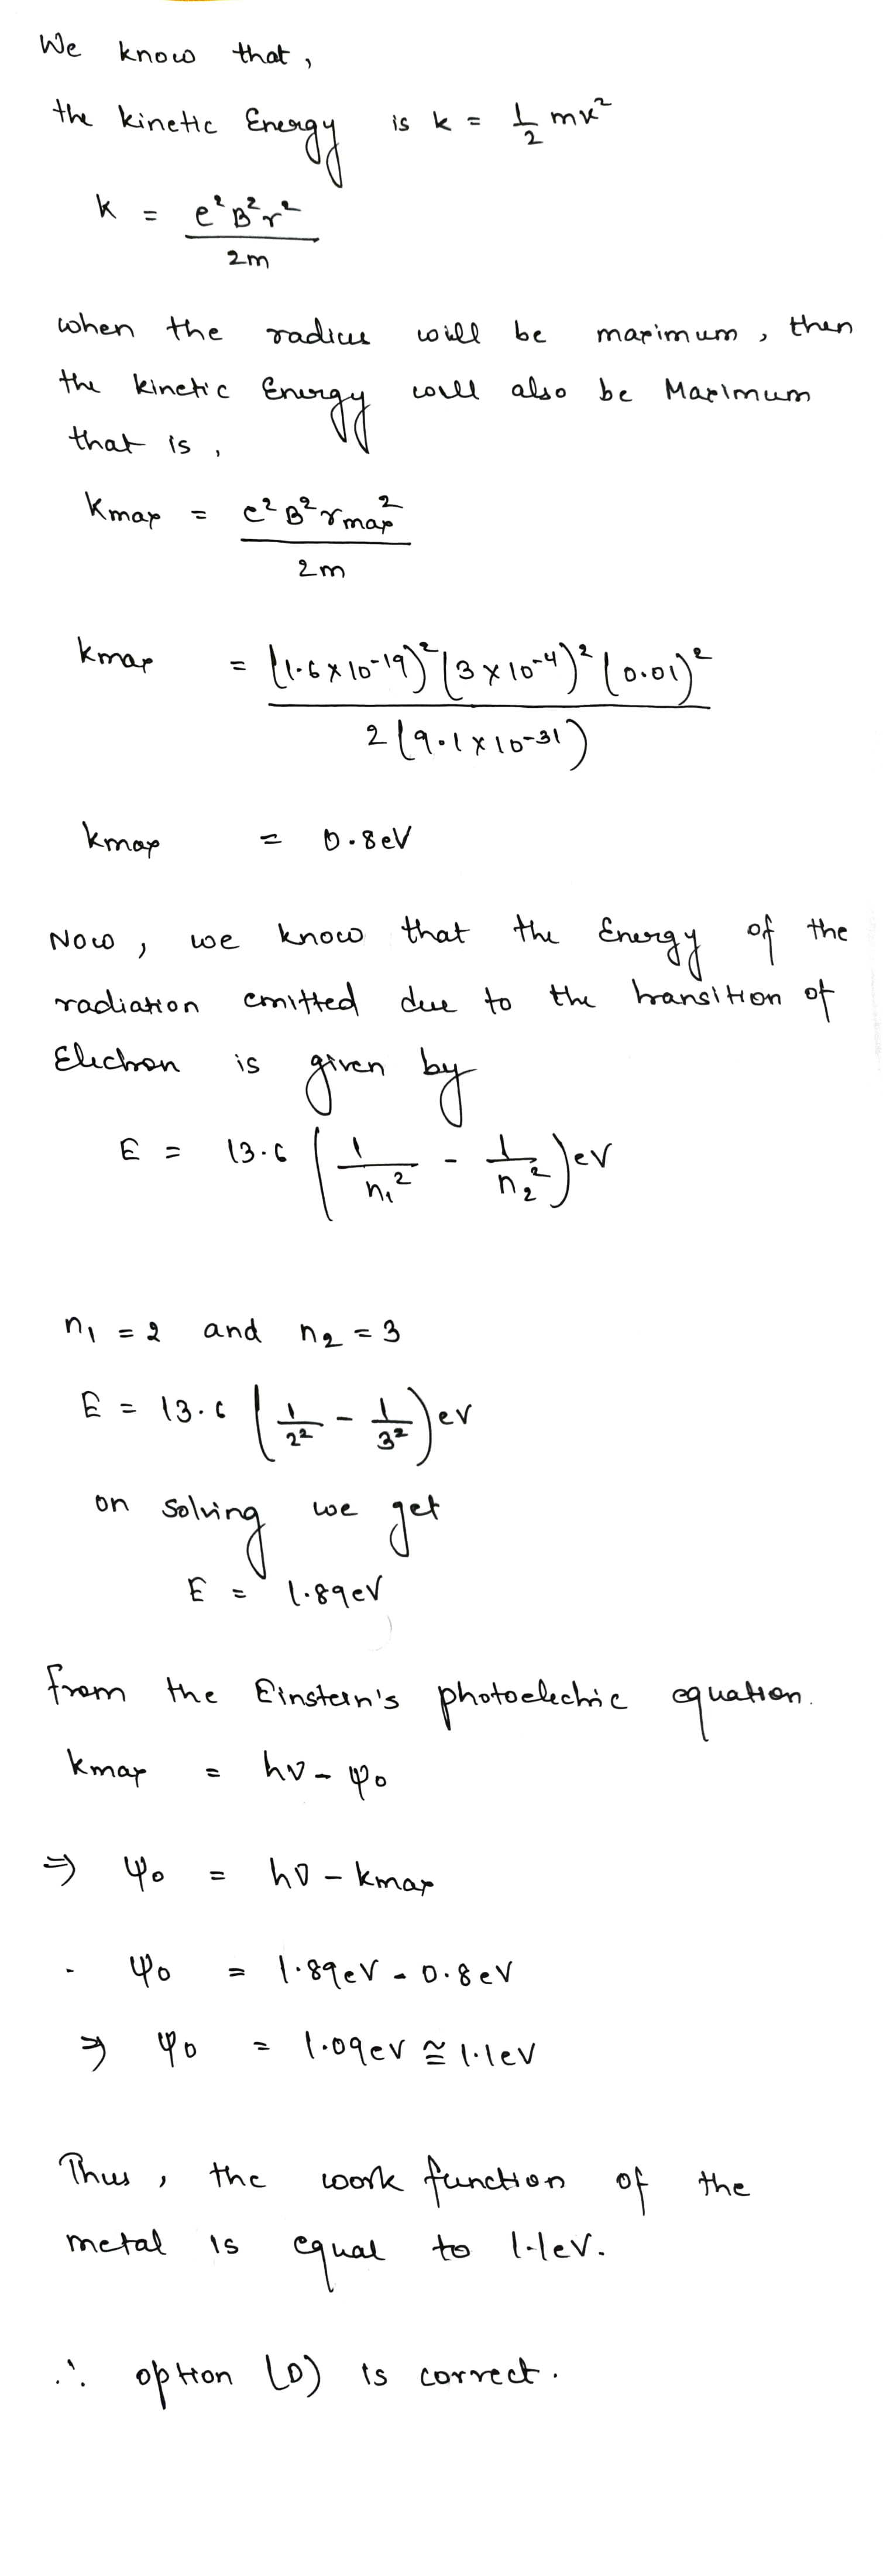 We know that,
the kinetic Energy is k = 1/2 mv²
k = e²B²r² / 2m
when the radius will be maximum, then
the kinetic Energy will also be Maximum
that is,
kmax = e²B²rmax² / 2m
kmax = (1.6×10⁻¹⁹)²(3×10⁻⁴)²(0.01)² / 2(9.1×10⁻³¹)
kmax = 0.8eV
Now, we know that the Energy of the
radiation emitted due to the transition of
Electron is given by
E = 13.6 (1/n₁² - 1/n₂²)eV
n₁ = 2 and n₂ = 3
E = 13.6 (1/2² - 1/3²)eV
on solving we get
E = 1.89eV
from the Einstein's photoelectric equation.
kmax = hν - φ₀
⇒ φ₀ = hν - kmax
. φ₀ = 1.89eV - 0.8eV
⇒ φ₀ = 1.09eV ≅ 1.1eV
Thus, the work function of the
metal is equal to 1.1eV.
∴ option (D) is correct.